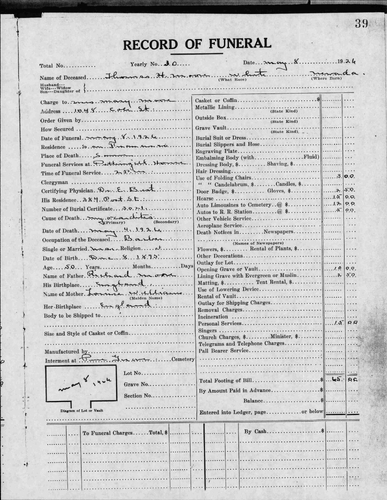 39
RECORD OF FUNERAL
Total No. Yearly No. 20 Date May 8 1926
Name of Deceased Thomas H. Moore White Nevada.
(What Race) (Where Born)
Husband
Wife—Widow
Son—Daughter of
Charge to Mrs Mary Moore
Address 1048 Cole St
Order Given by
How Secured
Date of Funeral May 8 1926
Residence San Francisco
Place of Death
Funeral Services at House
Time of Funeral Service 2 P.M.
Clergyman
Certifying Physician Dr E. Bert
His Residence 384 Post St.
Number of Burial Certificate 3021
Cause of Death Myocarditis
(Primary) (Secondary)
Date of Death May 4, 1926
Occupation of the Deceased
Single or Married Mar Religion
Date of Birth Dec 8 1875
Age 50 Years Months Days
Name of Father Richard Moore
His Birthplace England
Name of Mother Williams
(Maiden Name)
Her Birthplace England
Body to be Shipped to
Size and Style of Casket or Coffin
Manufactured by
Interment in Cemetery
Lot No.
Grave No.
Section No.
May 8, 1926
Diagram of Lot or Vault
Casket or Coffin $
Metallic Lining
(State Kind)
Outside Box
(State Kind)
Grave Vault
(State Kind)
Burial Suit or Dress
Burial Slippers and Hose
Engraving Plate
Embalming Body (with Fluid)
Dressing Body, $ Shaving, $
Hair Dressing
Use of Folding Chairs 3 00
" " Candelabrum, $ Candles, $
Door Badge, $ Gloves, $ 2 50
Hearse 15 00
Auto Limousines to Cemetery @ $ 12 00
Autos to R. R. Station @ $ 5 00
Other Vehicle Service
Aeroplane Service
Death Notices in Newspapers
(Names of Newspapers)
Flowers, $ Rental of Plants, $
Other Decorations
Outlay for Lot
Opening Grave or Vault 10 00
Lining Grave with Evergreen or Muslin 2 50
Matting, $ Tent Rental, $
Use of Lowering Device
Rental of Vault
Outlay for Shipping Charges
Removal Charges
Incineration
Personal Services 15 00
Singers
Church Charges, $ Minister, $
Telegrams and Telephone Charges
Pall Bearer Service
Total Footing of Bill $ 65 00
By Amount Paid in Advance $
Balance $
Entered into Ledger, page or below
To Funeral Charges Total, $ By Cash $